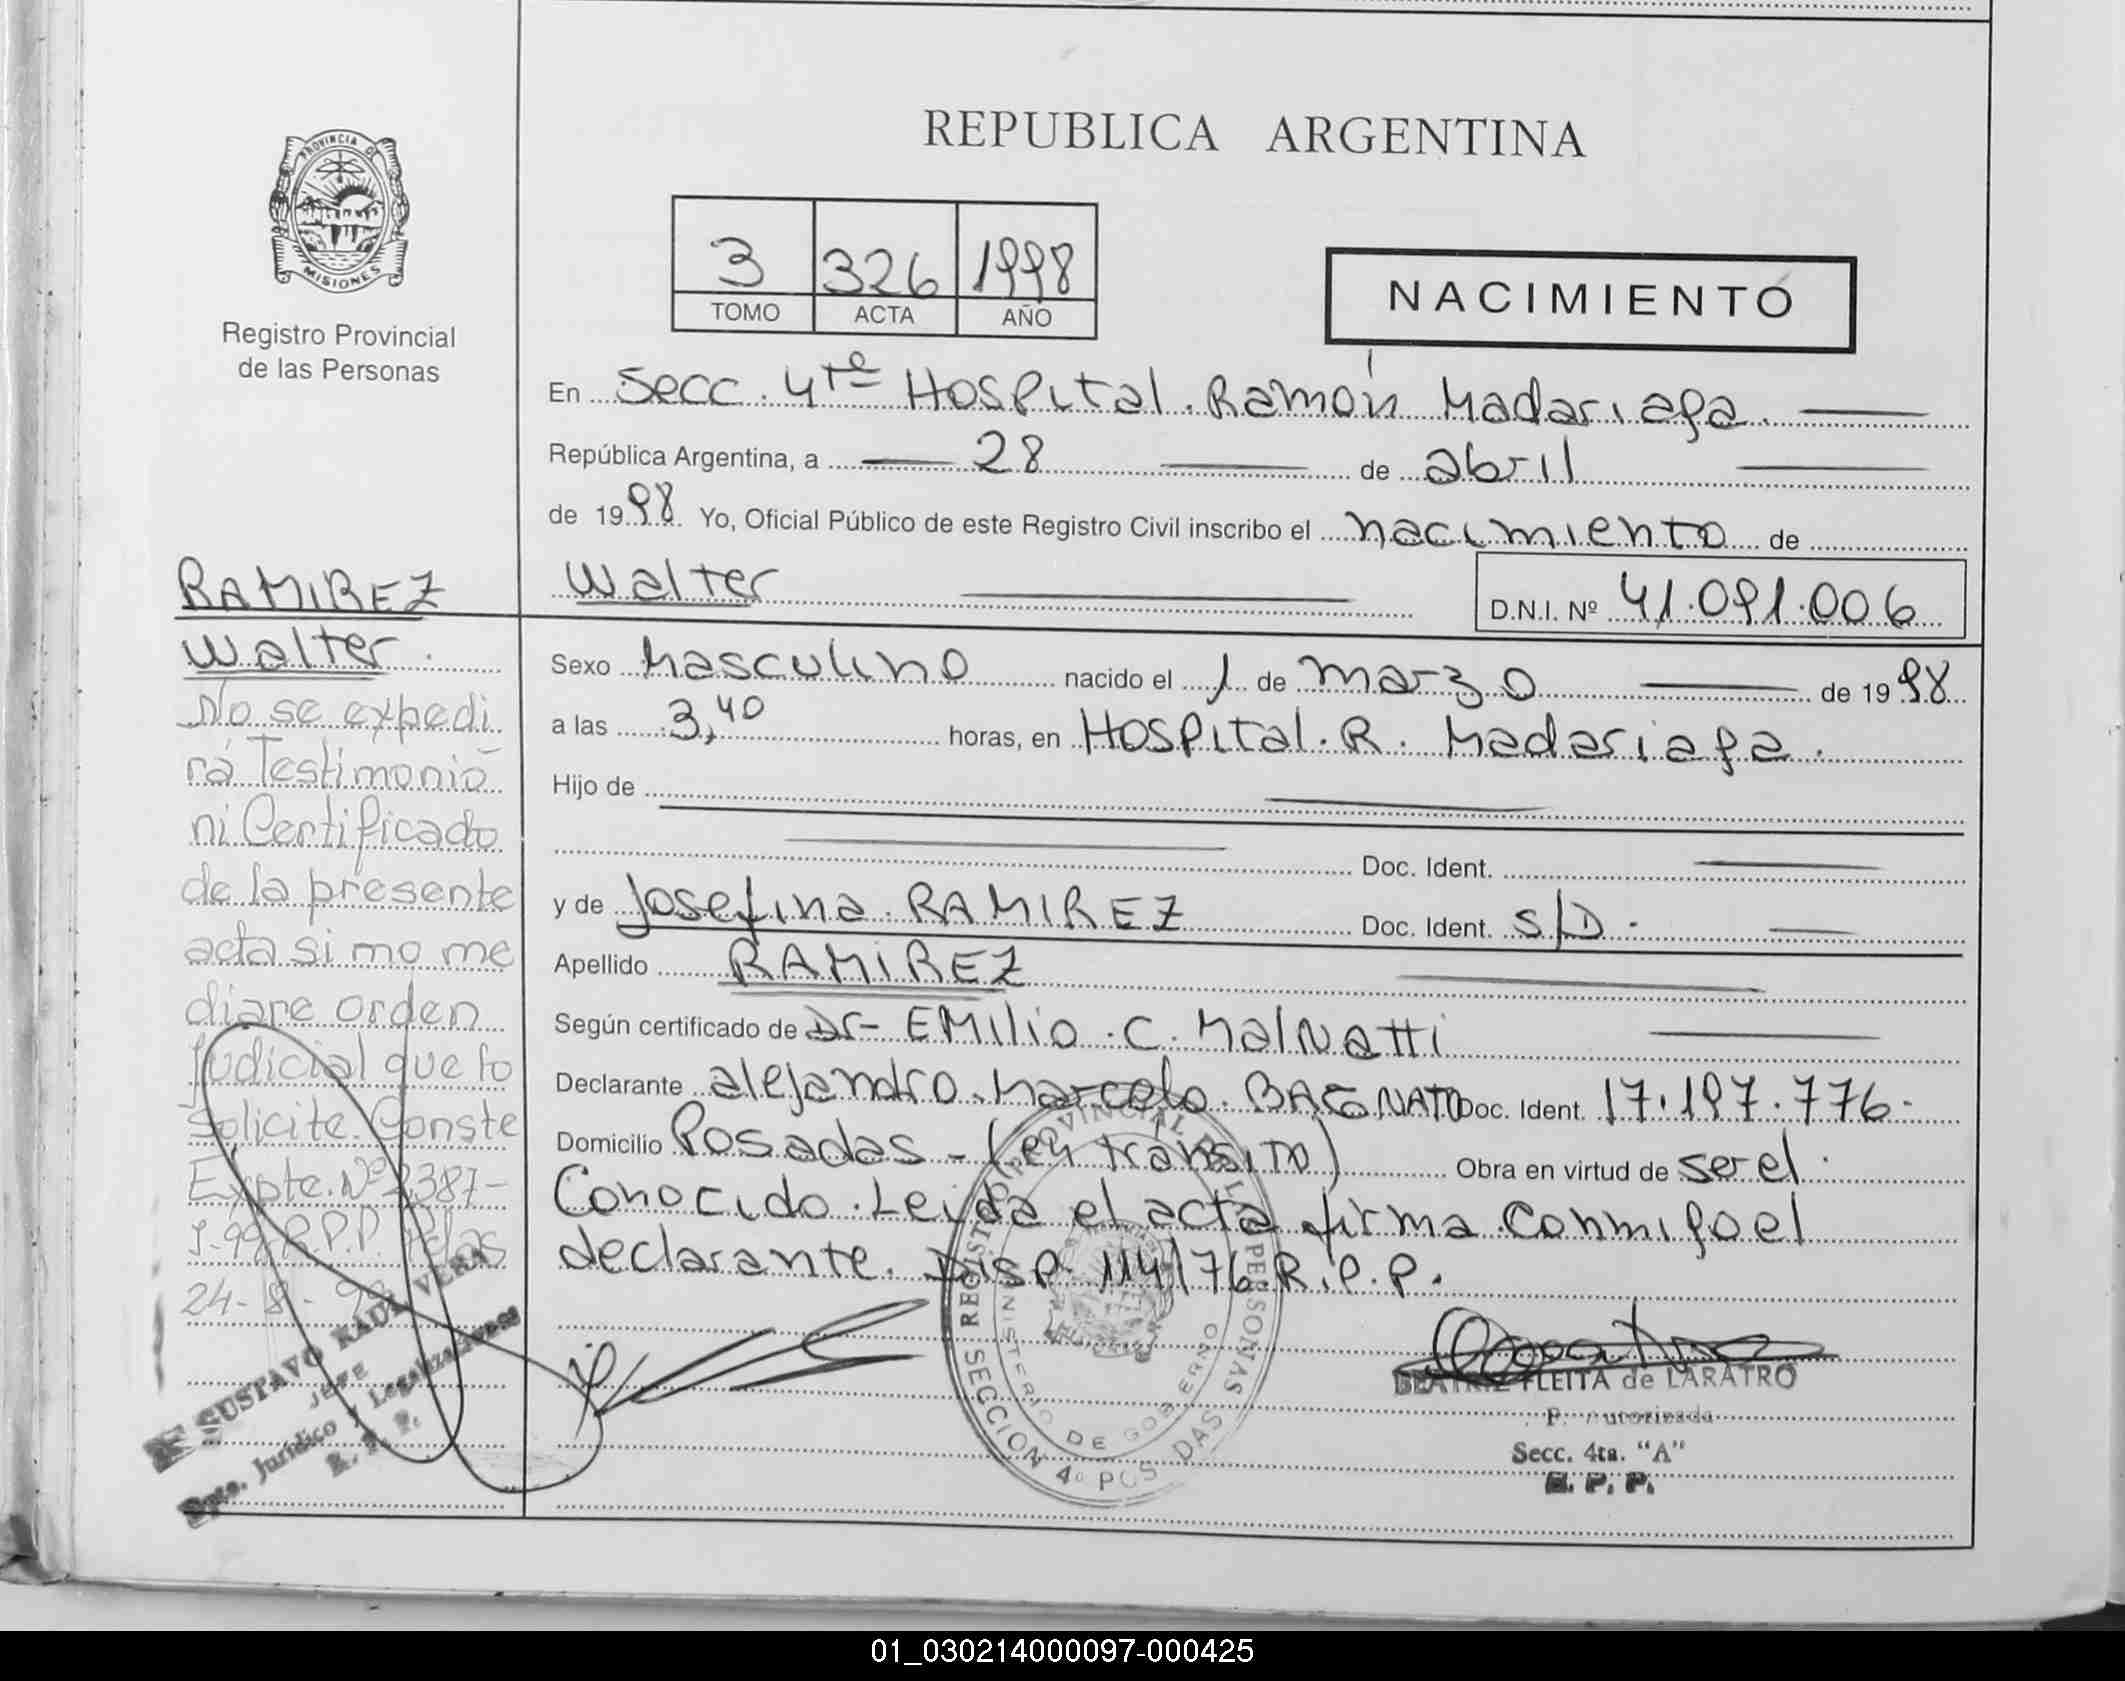 REPUBLICA ARGENTINA
PROVINCIA DE
MISIONES
Registro Provincial
de las Personas
3 326 1998
TOMO ACTA AÑO
NACIMIENTO
En Secc. 4ta Hospital. Ramón Madariaga.
República Argentina, a 28 de abril
de 1998. Yo, Oficial Público de este Registro Civil inscribo el nacimiento de
Walter
D.N.I. Nº 41.091.006
Sexo Masculino nacido el 1 de marzo de 1998
a las 3,40 horas, en Hospital. R. Madariaga.
Hijo de
Doc. Ident.
y de Josefina RAMIREZ Doc. Ident. S/D.
Apellido RAMIREZ
Según certificado de Dr- EMilio. C. MalNatti
Declarante alejandro Marcelo. BAGNATO Doc. Ident. 17.197.776.
Domicilio Posadas - (en tránsito) Obra en virtud de ser el.
Conocido. Leida el acta firma conmigo el
declarante. Disp. 114/76 R.P.P.
RAMIREZ
Walter.
No se expedi
rá Testimonio
ni Certificado
de la presente
acta si mo me
diare orden
judicial que lo
solicite. Conste
Expte. Nº 2387-
R.P.P. Pdas
24-8-
GUSTAVO RAUL VERA
JEFE
Dpto. Jurídico y Legalizaciones
R. P. P.
REGISTRO PROVINCIAL DE LAS PERSONAS
MINISTERIO DE GOBIERNO
SECCION 4º POSADAS
BEATRIZ FLEITA de LARATRO
P. Autorizada
Secc. 4ta. "A"
R. P. P.
01_030214000097-000425